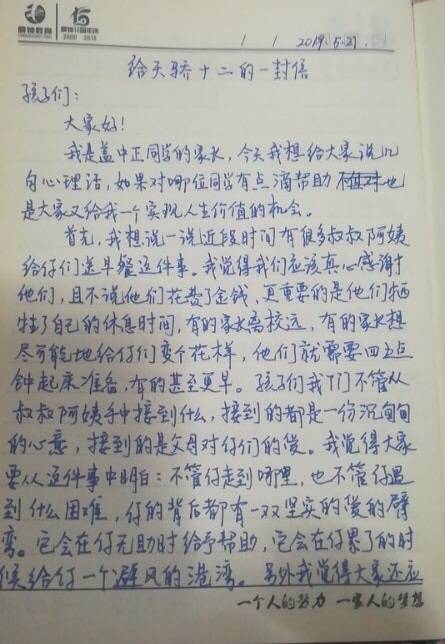 2019.5.27.
给天骄十二的一封信
孩子们:
大家好!
我是盖中正同学的家长,今天我想给大家说几
句心理话,如果对哪位同学有点滴帮助 也
是大家又给我一个实现人生价值的机会。
首先,我想说一说近段时间有很多叔叔阿姨
给你们送早餐这件事。我觉得我们应该真心感谢
他们,且不说他们花费了金钱,更重要的是他们牺
牲了自己的休息时间,有的家长离校远,有的家长想
尽可能地给你们变个花样,他们就需要四五点
钟起床准备,有的甚至更早。孩子们我们不管从
叔叔阿姨手中接到什么,接到的都是一份沉甸甸
的心意,接到的是父母对你们的爱。我觉得大家
要从这件事中明白:不管你走到哪里,也不管你遇
到什么困难,你的背后都有一双坚实的爱的臂
弯。它会在你无助时给予帮助,它会在你累了的时
候给你一个避风的港湾。另外我觉得大家还应
一个人的努力 一家人的梦想